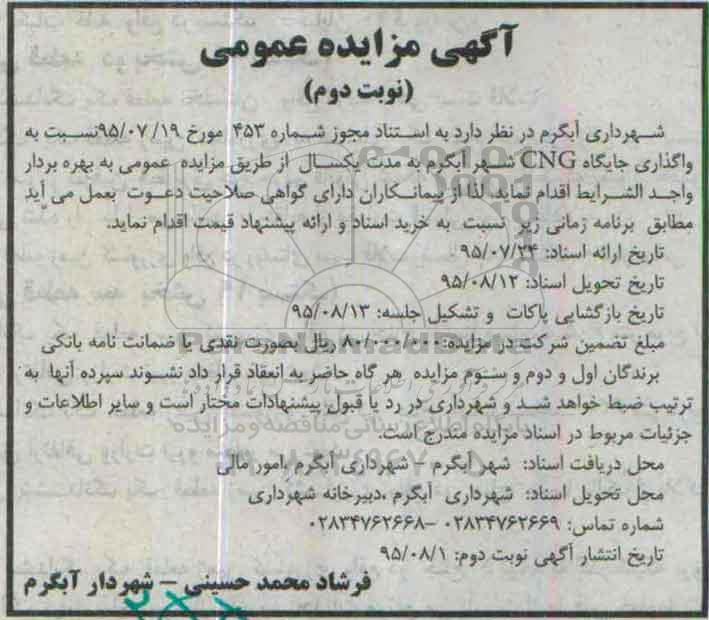 آگهی مزایده عمومی
(نوبت دوم)
شهرداری آبگرم در نظر دارد به استناد مجوز شماره ۴۵۳ مورخ ۹۵/۰۷/۱۹نسبت به
واگذاری جایگاه CNG شهر آبگرم به مدت یکسال از طریق مزایده عمومی به بهره بردار
واجد الشرایط اقدام نماید. لذا از پیمانکاران دارای گواهی صلاحیت دعوت بعمل می آید
مطابق برنامه زمانی زیر نسبت به خرید اسناد و ارائه پیشنهاد قیمت اقدام نماید.
تاریخ ارائه اسناد: ۹۵/۰۷/۲۴
تاریخ تحویل اسناد: ۹۵/۰۸/۱۲
تاریخ بازگشایی پاکات و تشکیل جلسه: ۹۵/۰۸/۱۳
مبلغ تضمین شرکت در مزایده: ۸۰/۰۰۰/۰۰۰ ریال بصورت نقدی یا ضمانت نامه بانکی
برندگان اول و دوم و سوم مزایده هر گاه حاضر به انعقاد قرار داد نشوند سپرده آنها به
ترتیب ضبط خواهد شد و شهرداری در رد یا قبول پیشنهادات مختار است و سایر اطلاعات و
جزئیات مربوط در اسناد مزایده مندرج است.
محل دریافت اسناد: شهر آبگرم – شهرداری آبگرم ،امور مالی
محل تحویل اسناد: شهرداری آبگرم ،دبیرخانه شهرداری
شماره تماس: ۰۲۸۳۴۷۶۲۶۶۹ –۰۲۸۳۴۷۶۲۶۶۸
تاریخ انتشار آگهی نوبت دوم: ۹۵/۰۸/۱
فرشاد محمد حسینی – شهردار آبگرم